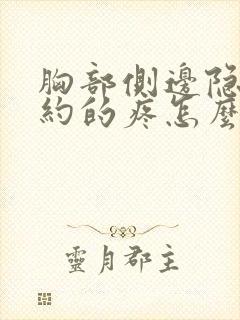 胸部側邊隐
約的疼怎麼
靈月郡主